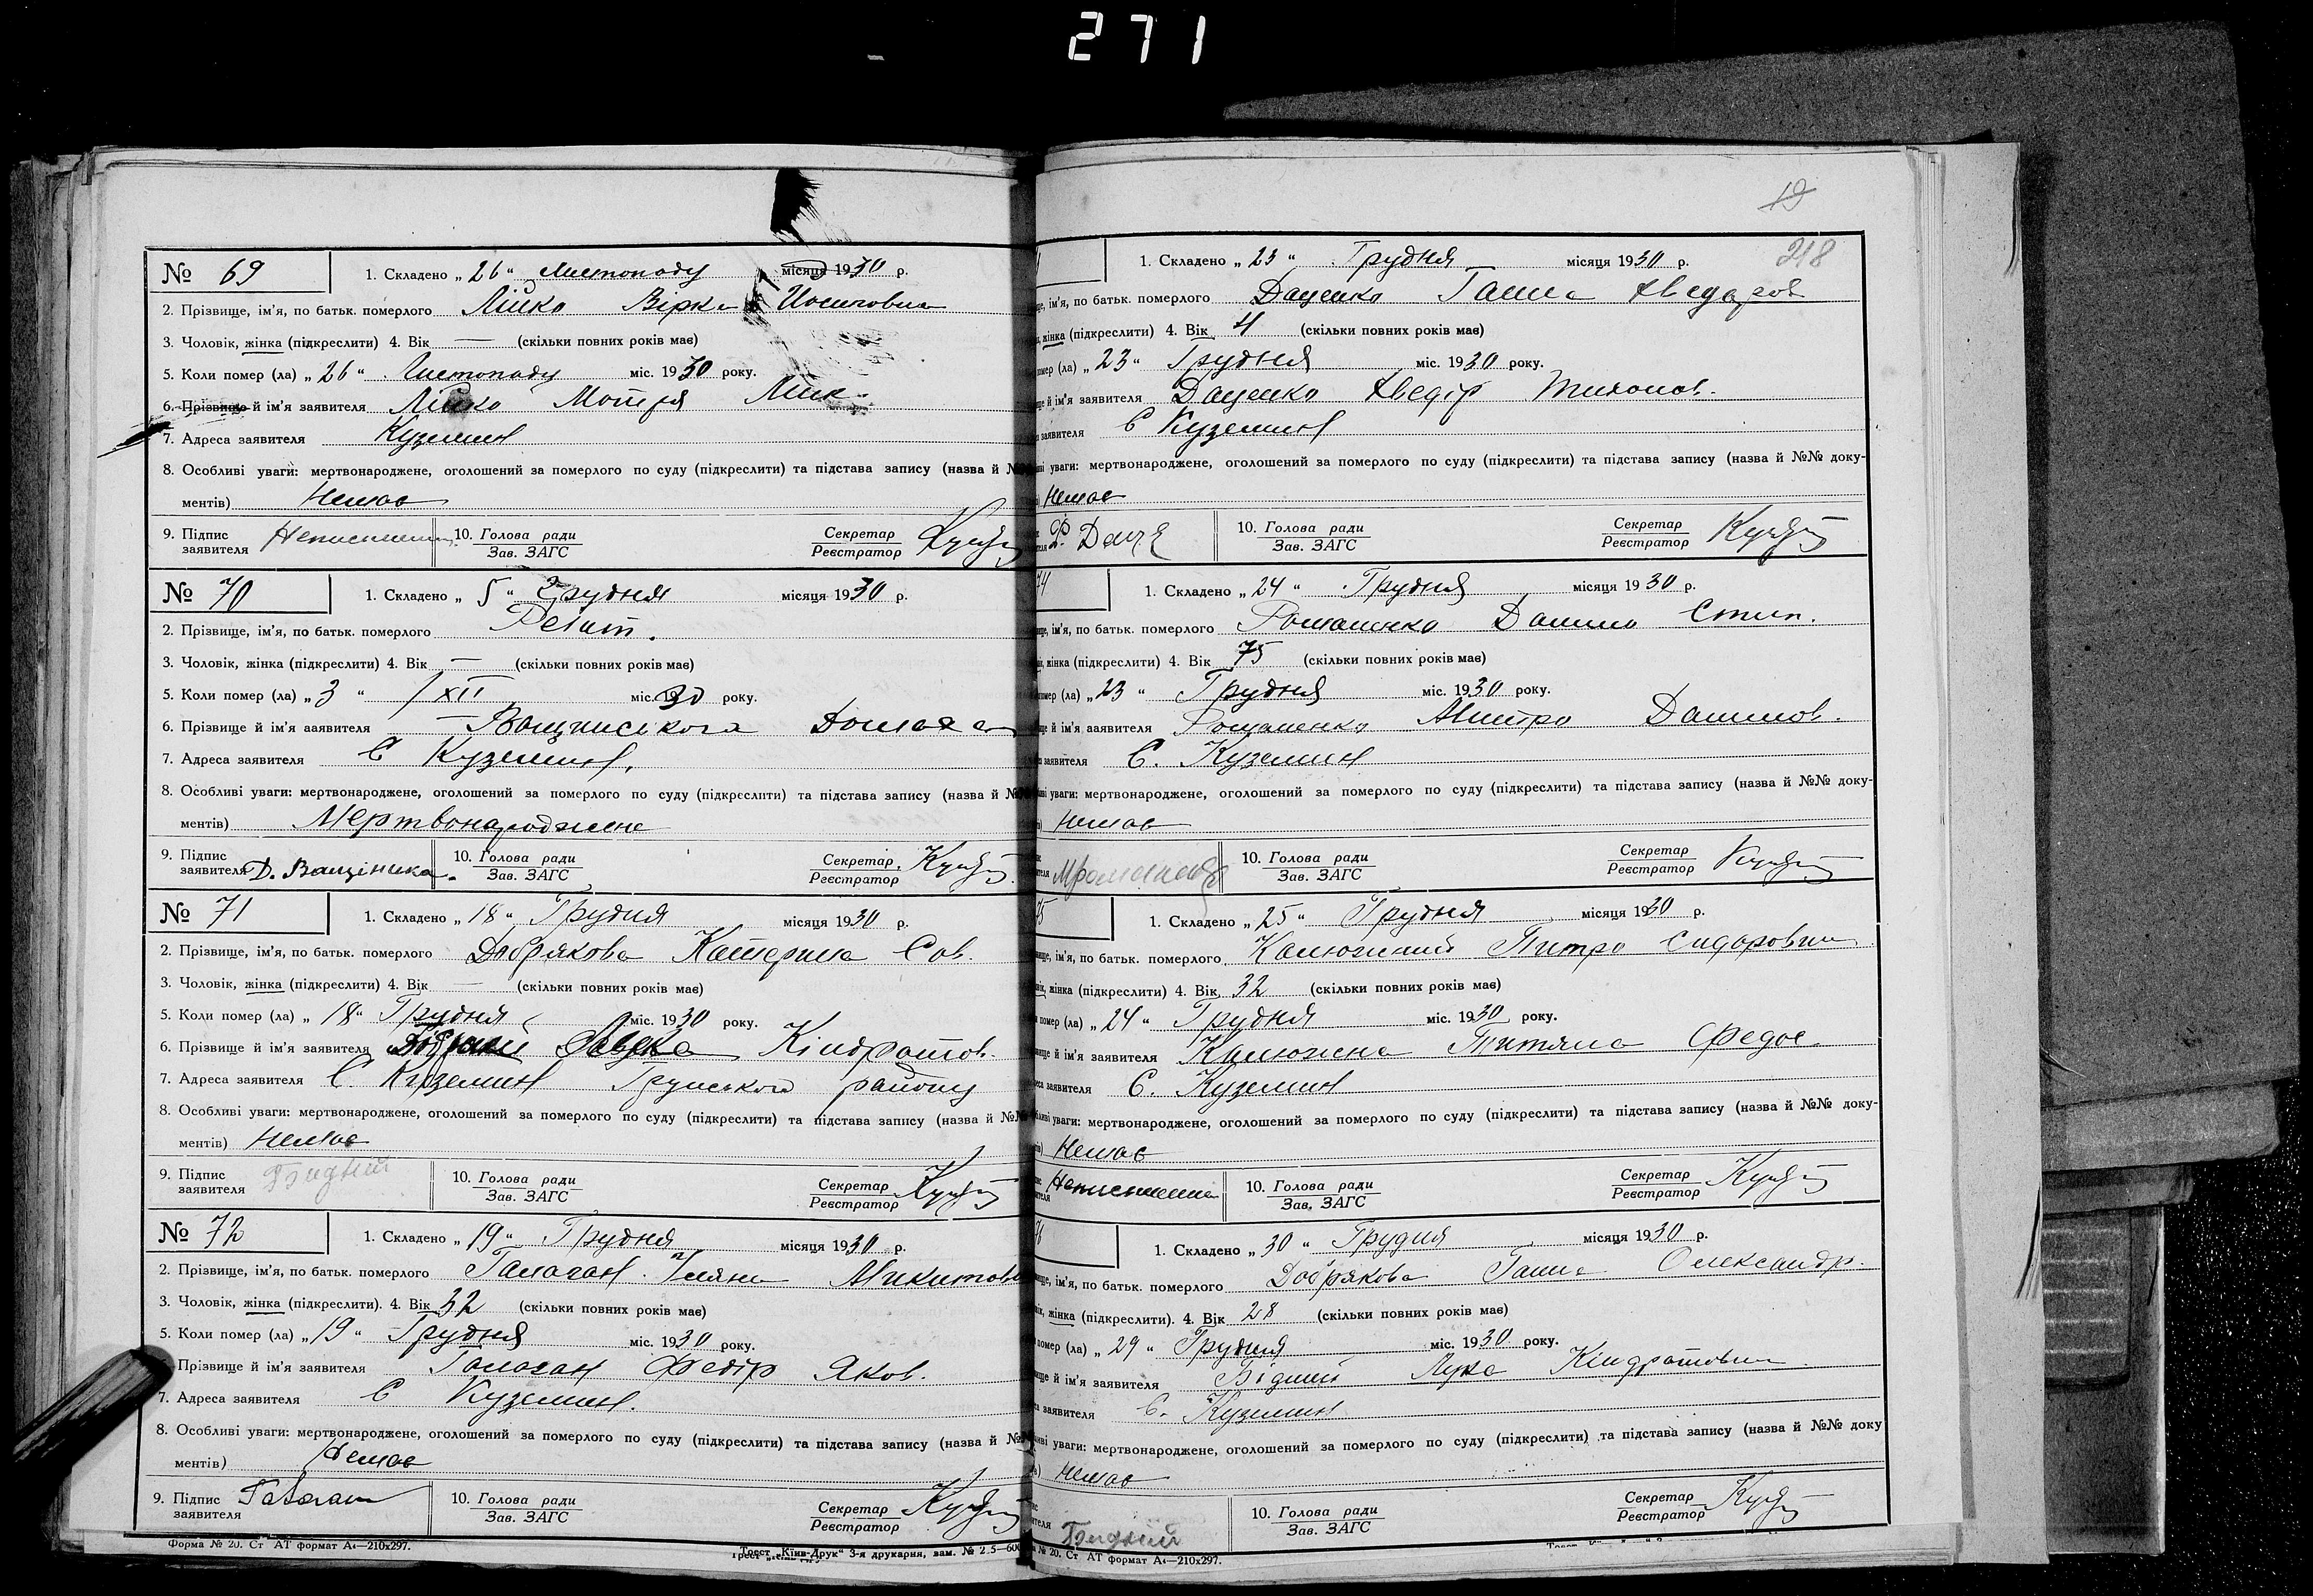 271
№ 69
1. Складено „ 26 “ Листопаду місяця 1930 р.
2. Прізвище, ім'я, по батьк. померлого Лійко Вірка Иосиповна
3. Чоловік, жінка (підкреслити) 4. Вік — (скільки повних років має)
5. Коли помер (ла) „ 26 “ Листопаду міс. 1930 року.
6. Прізвище й ім'я заявителя Лійко Мотря
7. Адреса заявителя Куземин
8. Особливі уваги: мертвонароджене, оголошений за померлого по суду (підкреслити) та підстава запису (назва й №
ментів) Немає
9. Підпис заявителя Неписьменн. 10. Голова ради Зав. ЗАГС Секретар Реєстратор
№ 70
1. Складено „ 5 “ Грудня місяця 1930 р.
2. Прізвище, ім'я, по батьк. померлого
3. Чоловік, жінка (підкреслити) 4. Вік — (скільки повних років має)
5. Коли помер (ла) „ 3 “ / XII міс. 1930 року.
6. Прізвище й ім'я заявителя
7. Адреса заявителя С Куземин,
8. Особливі уваги: мертвонароджене, оголошений за померлого по суду (підкреслити) та підстава запису (назва й №
ментів) Мертвонароджене
9. Підпис заявителя Д. 10. Голова ради Зав. ЗАГС Секретар Реєстратор
№ 71
1. Складено „ 18 “ Грудня місяця 1930 р.
2. Прізвище, ім'я, по батьк. померлого Добрякова Катерина Сав.
3. Чоловік, жінка (підкреслити) 4. Вік — (скільки повних років має)
5. Коли помер (ла) „ 18 “ Грудня міс. 1930 року.
6. Прізвище й ім'я заявителя Кіндратов.
7. Адреса заявителя С. Куземин Грунського району
8. Особливі уваги: мертвонароджене, оголошений за померлого по суду (підкреслити) та підстава запису (назва й №№
ментів) Немає
9. Підпис заявителя 10. Голова ради Зав. ЗАГС Секретар Реєстратор
№ 72
1. Складено „ 19 “ Грудня місяця 1930 р.
2. Прізвище, ім'я, по батьк. померлого Галаган Уляна Микитовн
3. Чоловік, жінка (підкреслити). 4. Вік 32 (скільки повних років має)
5. Коли помер (ла) „ 19 “ Грудня міс. 1930 року.
Прізвище й ім'я заявителя Галаган Федір Яков.
7. Адреса заявителя С Куземин.
8. Особливі уваги: мертвонароджене, оголошений за померлого по суду (підкреслити) та підстава запису (назва й №
ментів) Немає
9. Підпис заявителя Галаган 10. Голова ради Зав. ЗАГС Секретар Реєстратор
Форма № 20. Ст АТ формат А4—210x297.
Трест „Київ-Друк“ 3-я друкарня, зам. №
19
218
1. Складено „ 23 “ Грудня місяця 1930 р.
ім'я, по батьк. померлого Даценко Ганна Хведоров
жінка (підкреслити) 4. Вік 4 (скільки повних років має)
помер (ла) „ 23 “ Грудня міс. 1930 року.
й ім'я заявителя Даценко Хведір Тихонов.
заявителя С Куземин
уваги: мертвонароджене, оголошений за померлого по суду (підкреслити) та підстава запису (назва й №№ доку-
Немає
10. Голова ради Зав. ЗАГС Секретар Реєстратор
74
1. Складено „ 24 “ Грудня місяця 1930 р.
ім'я, по батьк. померлого Романенко Данило Степ.
жінка (підкреслити) 4. Вік 75 (скільки повних років має)
помер (ла) „ 23 “ Грудня міс. 1930 року.
й ім'я заявителя Романенко Митро Данилов.
заявителя С. Куземин
уваги: мертвонароджене, оголошений за померлого по суду (підкреслити) та підстава запису (назва й №№ доку-
Немає
10. Голова ради Зав. ЗАГС Секретар Реєстратор
75
1. Складено „ 25 “ Грудня місяця 1930 р.
ім'я, по батьк. померлого Калюжний Питро Сидорович
жінка (підкреслити) 4. Вік 32 (скільки повних років має)
помер (ла) „ 24 “ Грудня міс. 1930 року.
й ім'я заявителя Калюжна Титяна Федос.
заявителя С. Куземин
уваги: мертвонароджене, оголошений за померлого по суду (підкреслити) та підстава запису (назва й №№ доку-
Немає
Неписьменна 10. Голова ради Зав. ЗАГС Секретар Реєстратор
1. Складено „ 30 “ Грудня місяця 1930 р.
ім'я, по батьк. померлого Добрякова Ганна Олександр.
жінка (підкреслити). 4. Вік 28 (скільки повних років має)
помер (ла) „ 29 “ Грудня міс. 1930 року.
й ім'я заявителя Бідний Лука Кіндратович
заявителя С. Куземин
уваги: мертвонароджене, оголошений за померлого по суду (підкреслити) та підстава запису (назва й №№ доку
Немає
10. Голова ради Зав. ЗАГС Секретар Реєстратор
№ 20. Ст АТ формат А4—210x297.